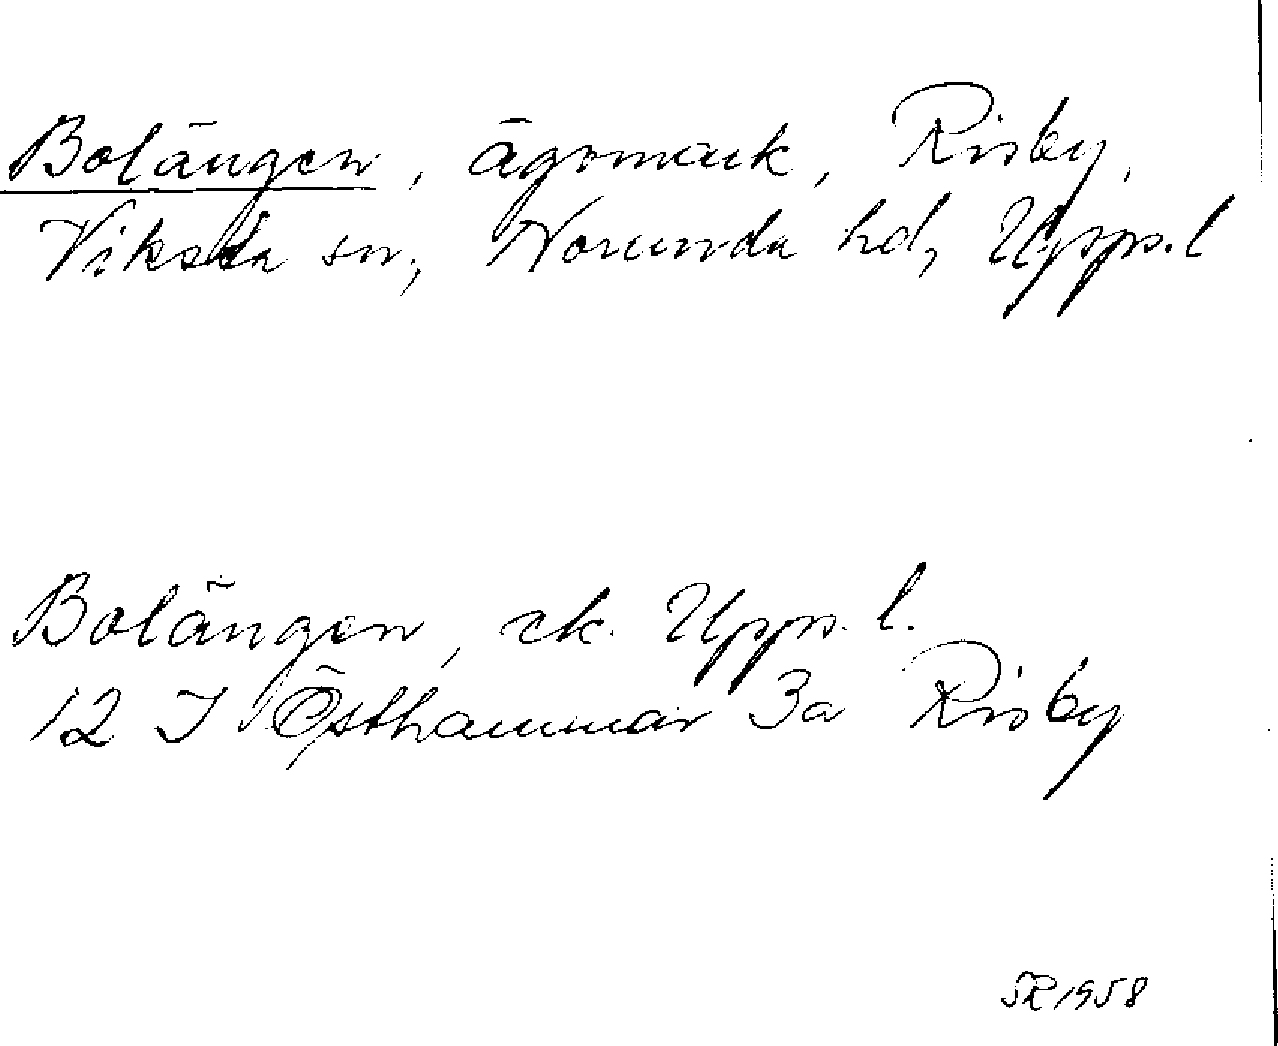 Bolängen, ägomark, Risby,
Viksta sn, Norunda hd, Upps. l
Bolängen, ek. Upps. l.
12 I Östhammar 3a Risby
SR 1958